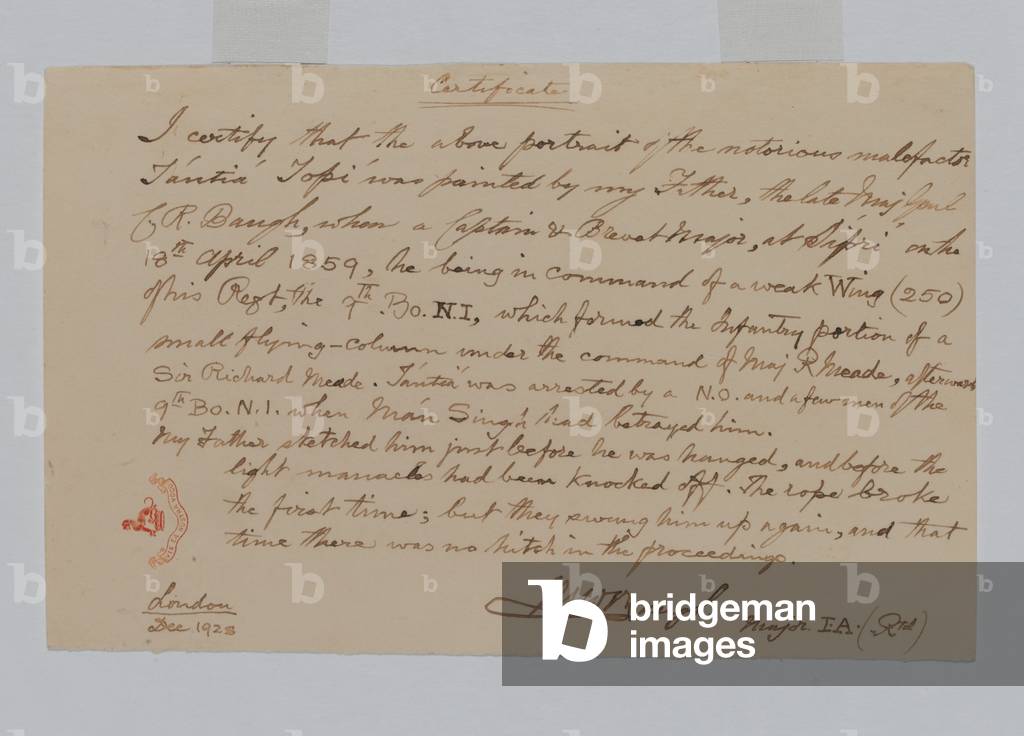 Certificate
I certify that the above portrait of the notorious malefactor
Tántiá Topí was painted by my Father, the late Maj Genl
R. Baugh, when a Captain & Brevet Major, at Sipri on the
18th April 1859, he being in command of a weak Wing (250)
of his Regt, the 9th Bo. N.I., which formed the Infantry portion of a
small flying-column under the command of Maj R Meade, afterwards
Sir Richard Meade. Tántiá was arrested by a N.O. and a few men of the
9th Bo. N.I. when Mán Singh had betrayed him.
My Father sketched him just before he was hanged, and before the
light manacles had been knocked off. The rope broke
the first time; but they swung him up again, and that
time there was no hitch in the proceedings.
London
Dec 1928
Major I.A. (Rtd)
bridgeman
images